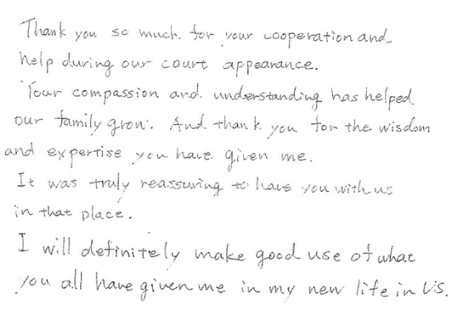 Thank you so much for your cooperation and
help during our court appearance.
Your compassion and understanding has helped
our family grow. And thank you for the wisdom
and expertise you have given me.
It was truly reassuring to have you with us
in that place.
I will definitely make good use of what
you all have given me in my new life in US.